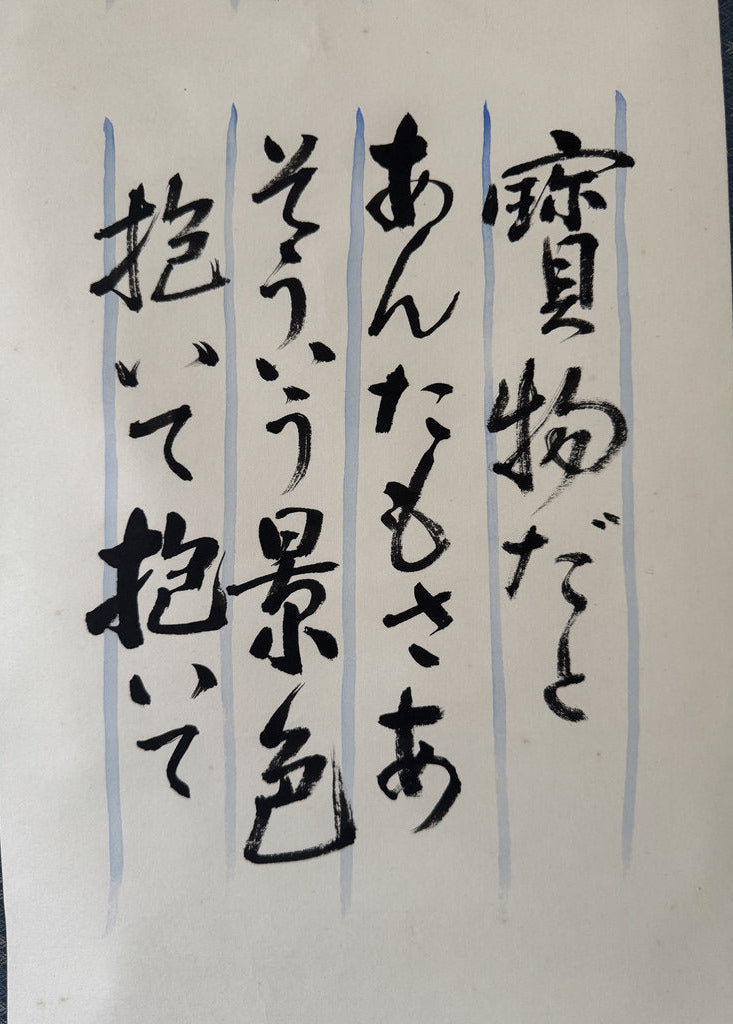 寶物だと
あんたもさあ
そういう景色
抱いて抱いて